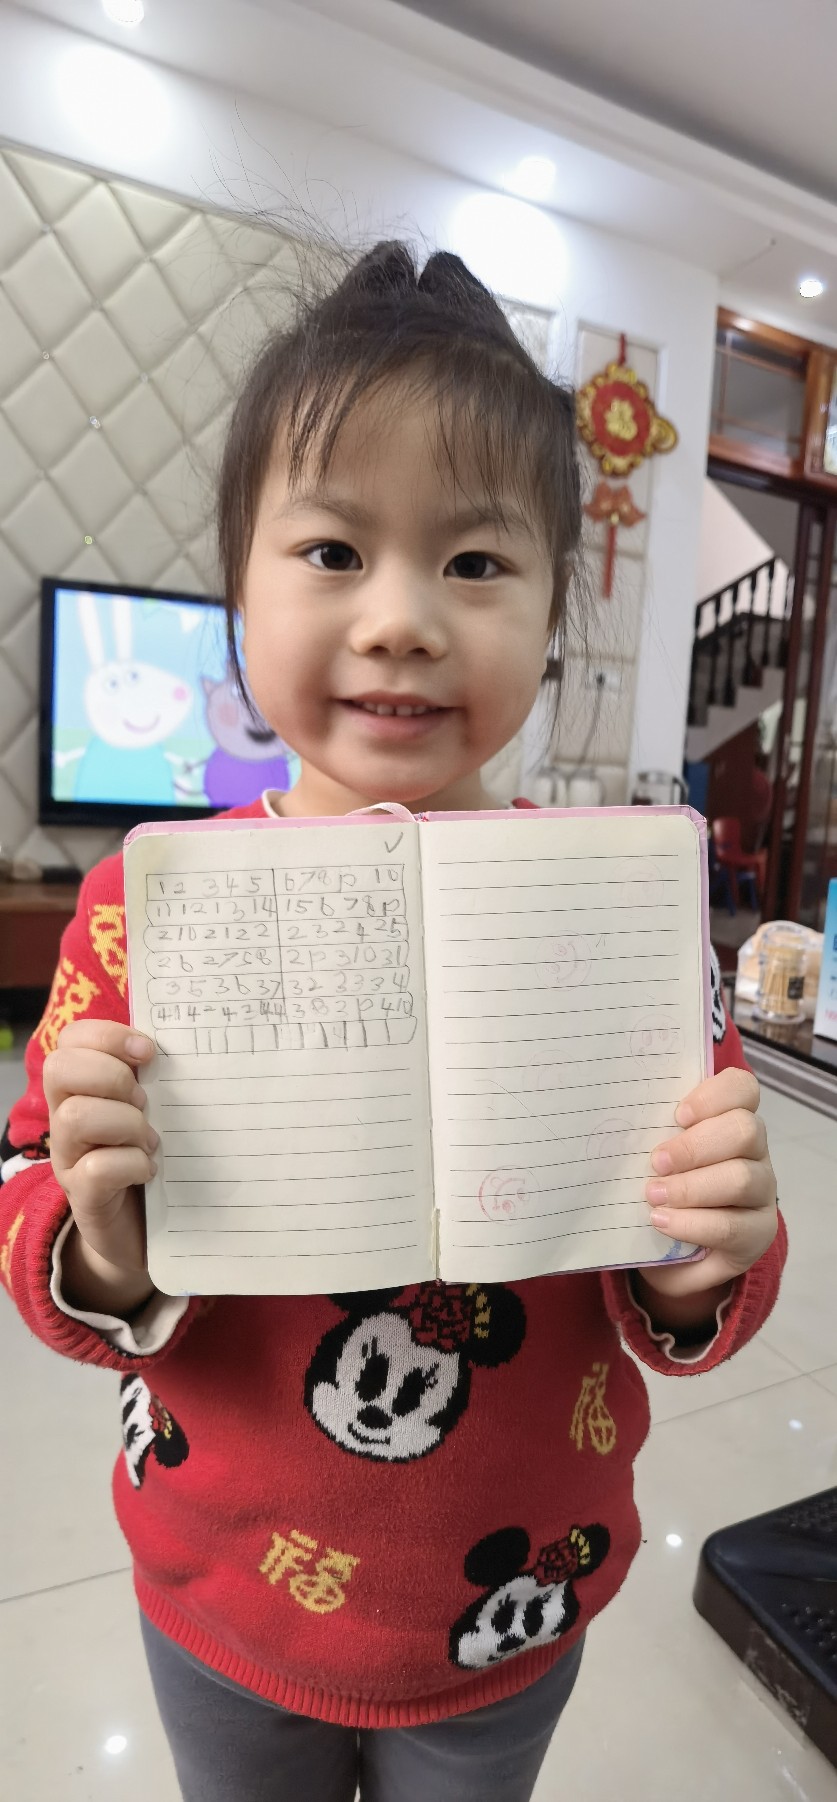 福
✓
1 2 3 4 5 6 7 8 p 10
11 12 13 14 15 6 7 8 p
2 10 2 1 2 2 2 3 2 4 25
2 6 2 7 5 8 2 p 3 10 31
3 5 3 6 37 32 33 3 4
41 42 4 3 44 3 8 3 p 4 10
福
福
福